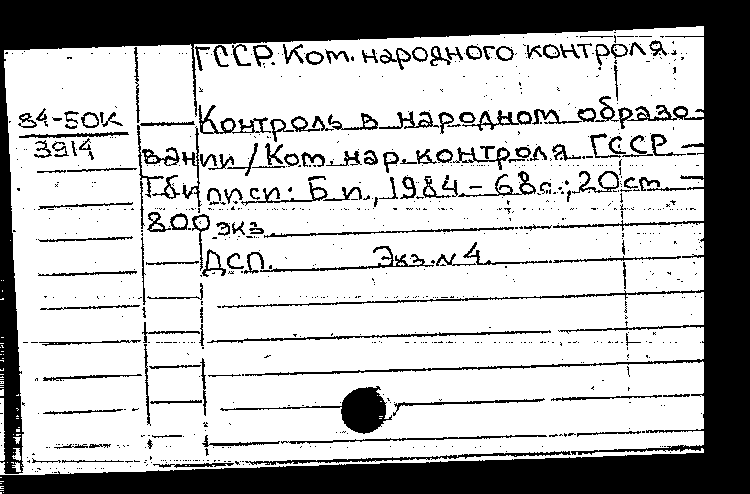 ГССР. Ком. народного контроля.
84-50К
3914
Контроль в народном образо-
вании / Ком. нар. контроля ГССР —
Тбилиси: Б и., 1984 - 68с.; 20см —
800 экз.
ДСП. Экз. N 4.